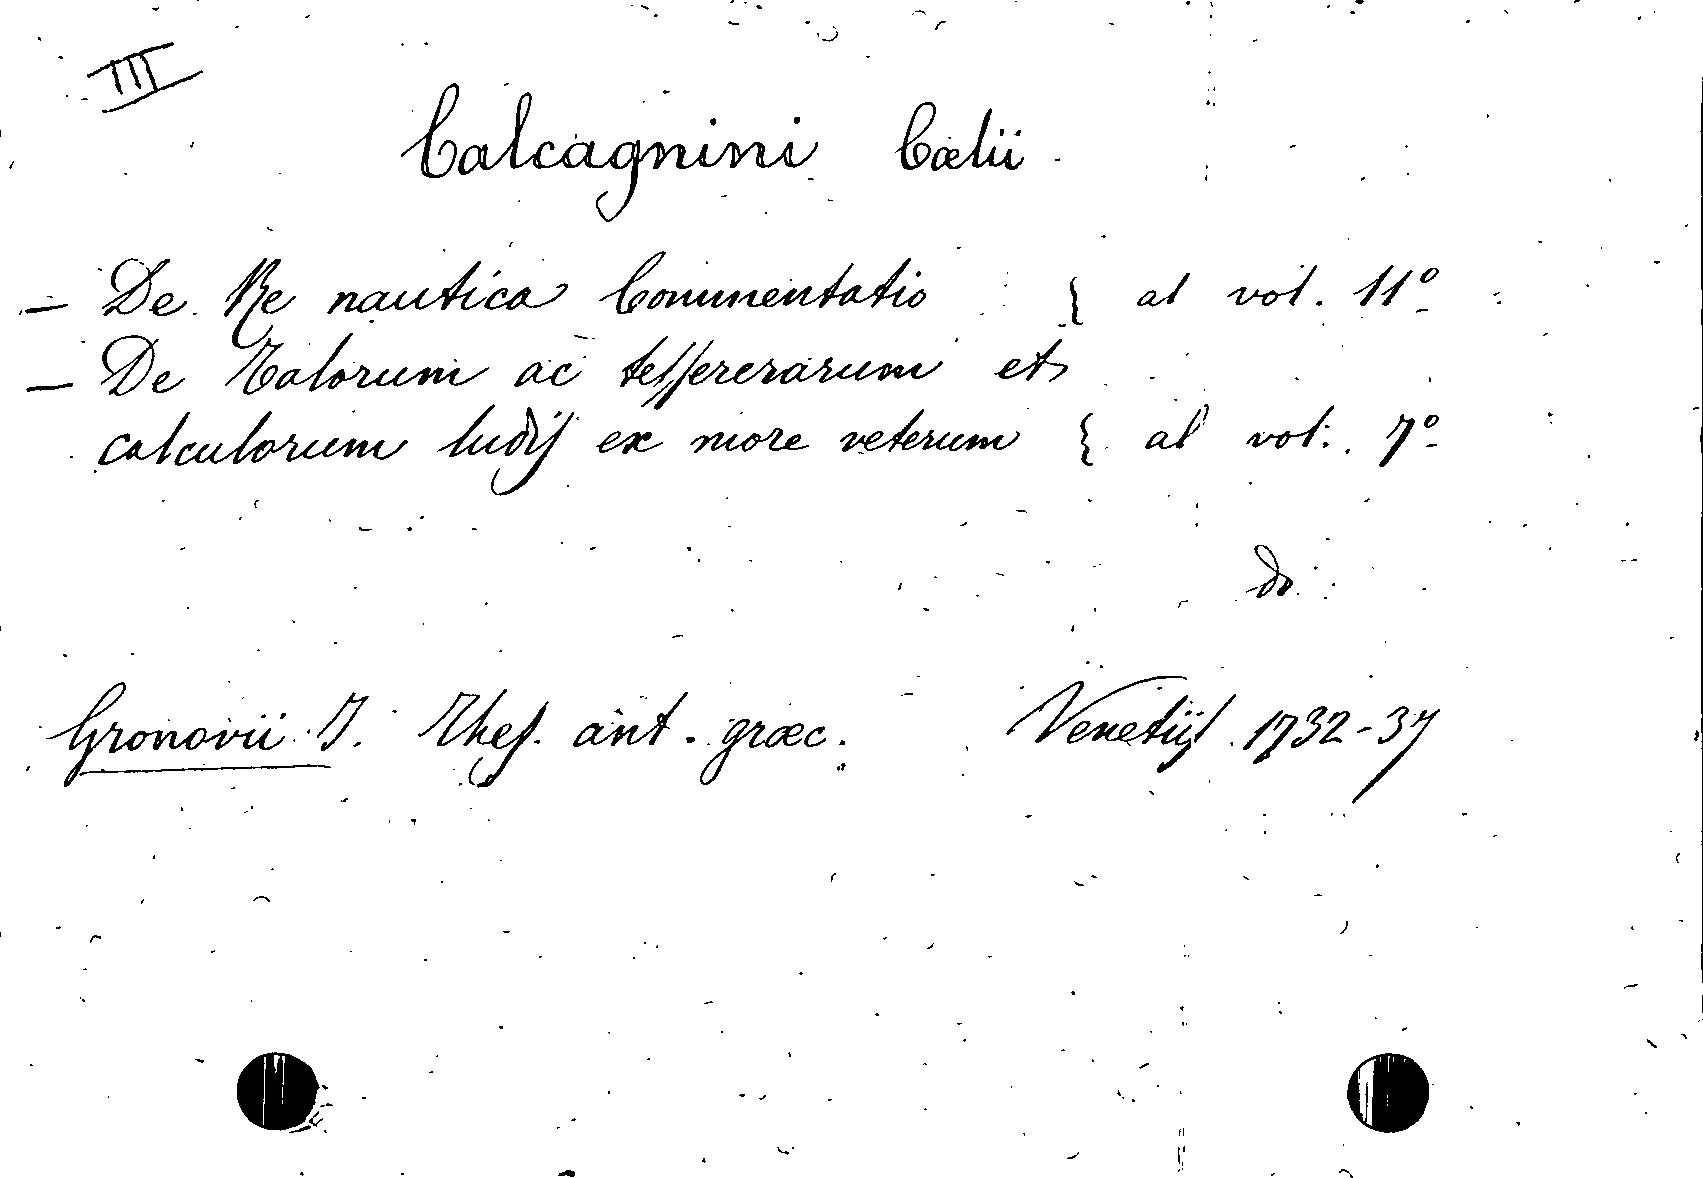 III
Calcagnini Cœlii
- De Re nautica Commentatio } al vol. 11º
- De Talorum ac tesserarum et
calculorum ludis ex more veterum } al vol. 7º
do
Gronovii J. Thes. ant. græc. Venetiis 1732-37